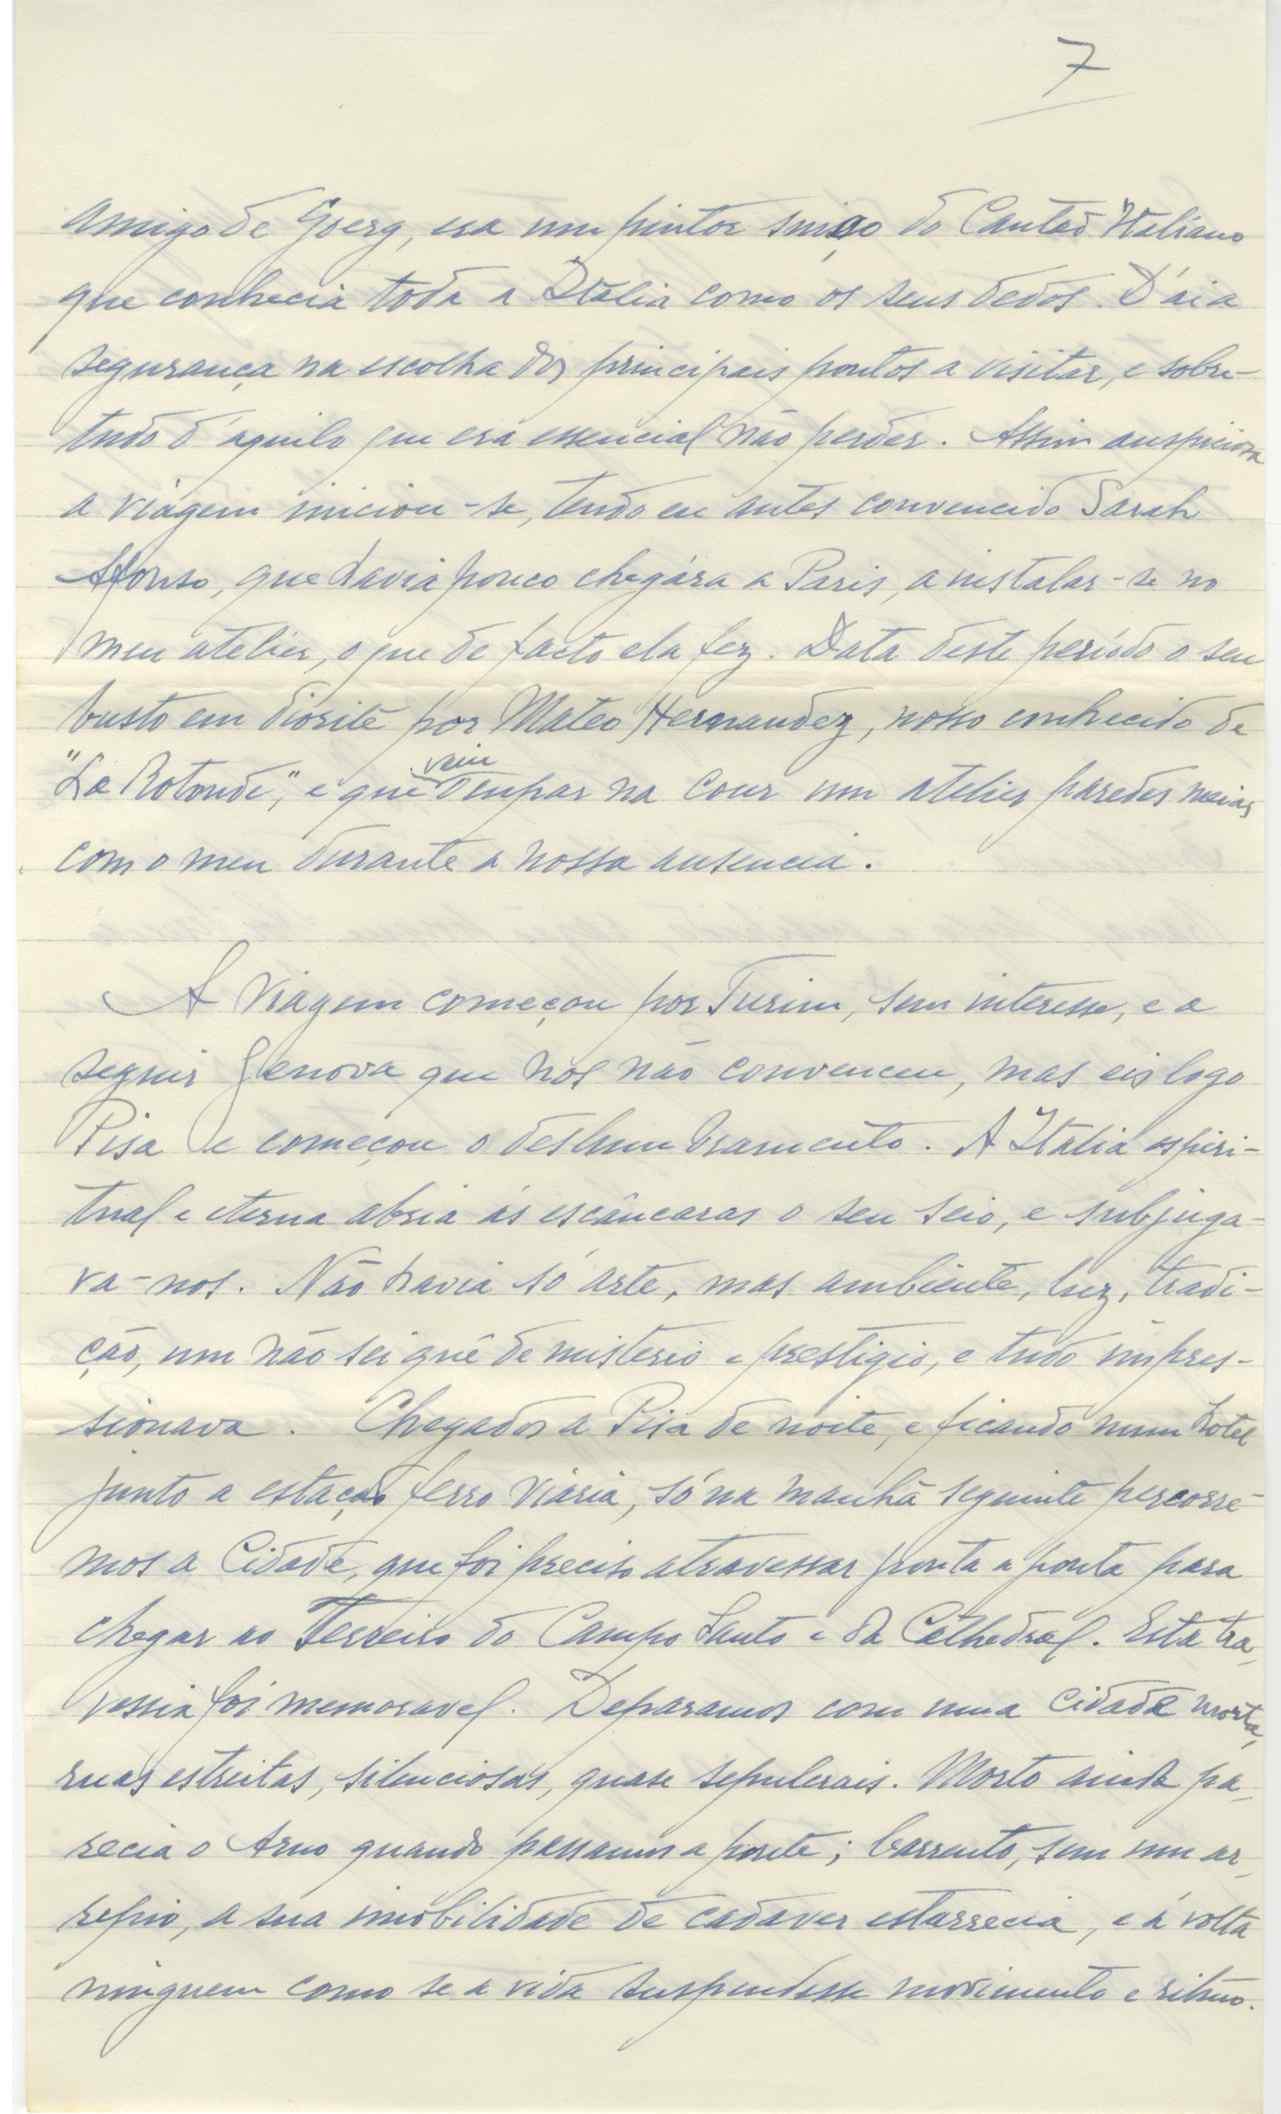 7
amigo de Goerg, era um pintor suiço do Cantão Italiano
que conhecia toda a Italia como os seus dedos. D'ái a
segurança na escolha dos principais pontos a visitar, e sobre-
tudo d'aquilo que era essencial não perder. Assim auspiciosa
a viágem iniciou-se, tendo eu antes convencido Sarah
Afonso, que havia pouco chegára a Paris, a instalar-se no
meu atelier, o que de facto ela fez. Data deste período o seu
busto em diorite por Mateo Hernandez, nosso conhecido de
"La Rotonde", e que veiu ocupar na cour um atelier paredes meias
com o meu durante a nossa ausencia.
A viagem começou por Turim, sem interesse, e a
seguir Genova que nos não convenceu, mas eis logo
Pisa e começou o deslumbramento. A Italia espiri-
tual e eterna abria ás escâncaras o seu seio, e subjuga-
va-nos. Não havia só arte, mas ambiente, luz, tradi-
ção, um não sei quê de misterio e prestigio, e tudo impres-
sionava. Chegados a Pisa de noite, e ficando num hotel
junto a estação ferro viária, só na manhã seguinte percorre-
mos a Cidade, que foi preciso atravessar ponta a ponta para
chegar ao Terreiro do Campo Santo e da Cathedral. Esta tra-
vessia foi memoravel. Deparamos com uma Cidade morta,
ruas estreitas, silenciosas, quase sepulcrais. Morto ainda pa-
recia o Arno quando passamos a ponte; barrento, sem um ar-
repio, a sua imobilidade de cadaver estarrecia, e á volta
ninguem como se a vida suspendesse movimento e ritmo.